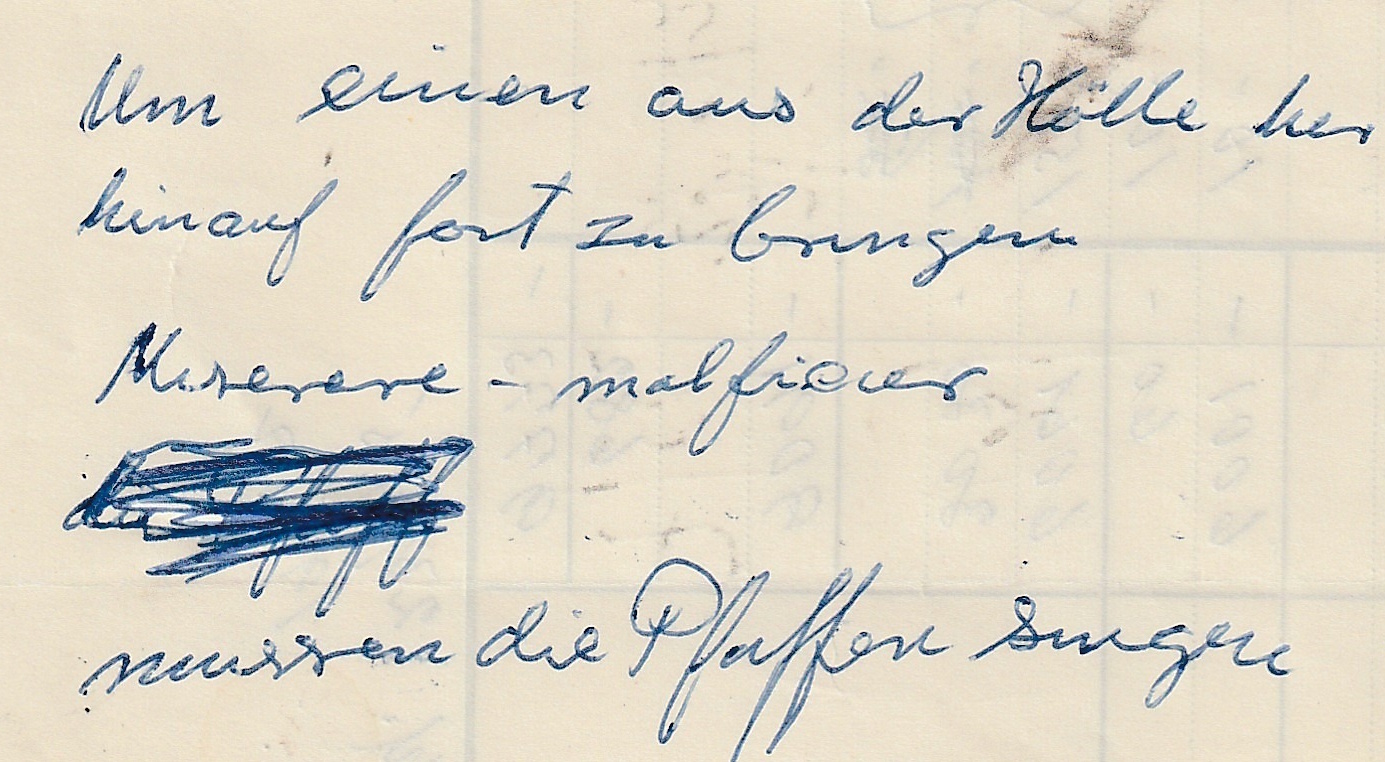 Um einen aus der Hölle her
hinauf fort zu bringen
Miserere - malfierer
mussen die Pfaffen singen